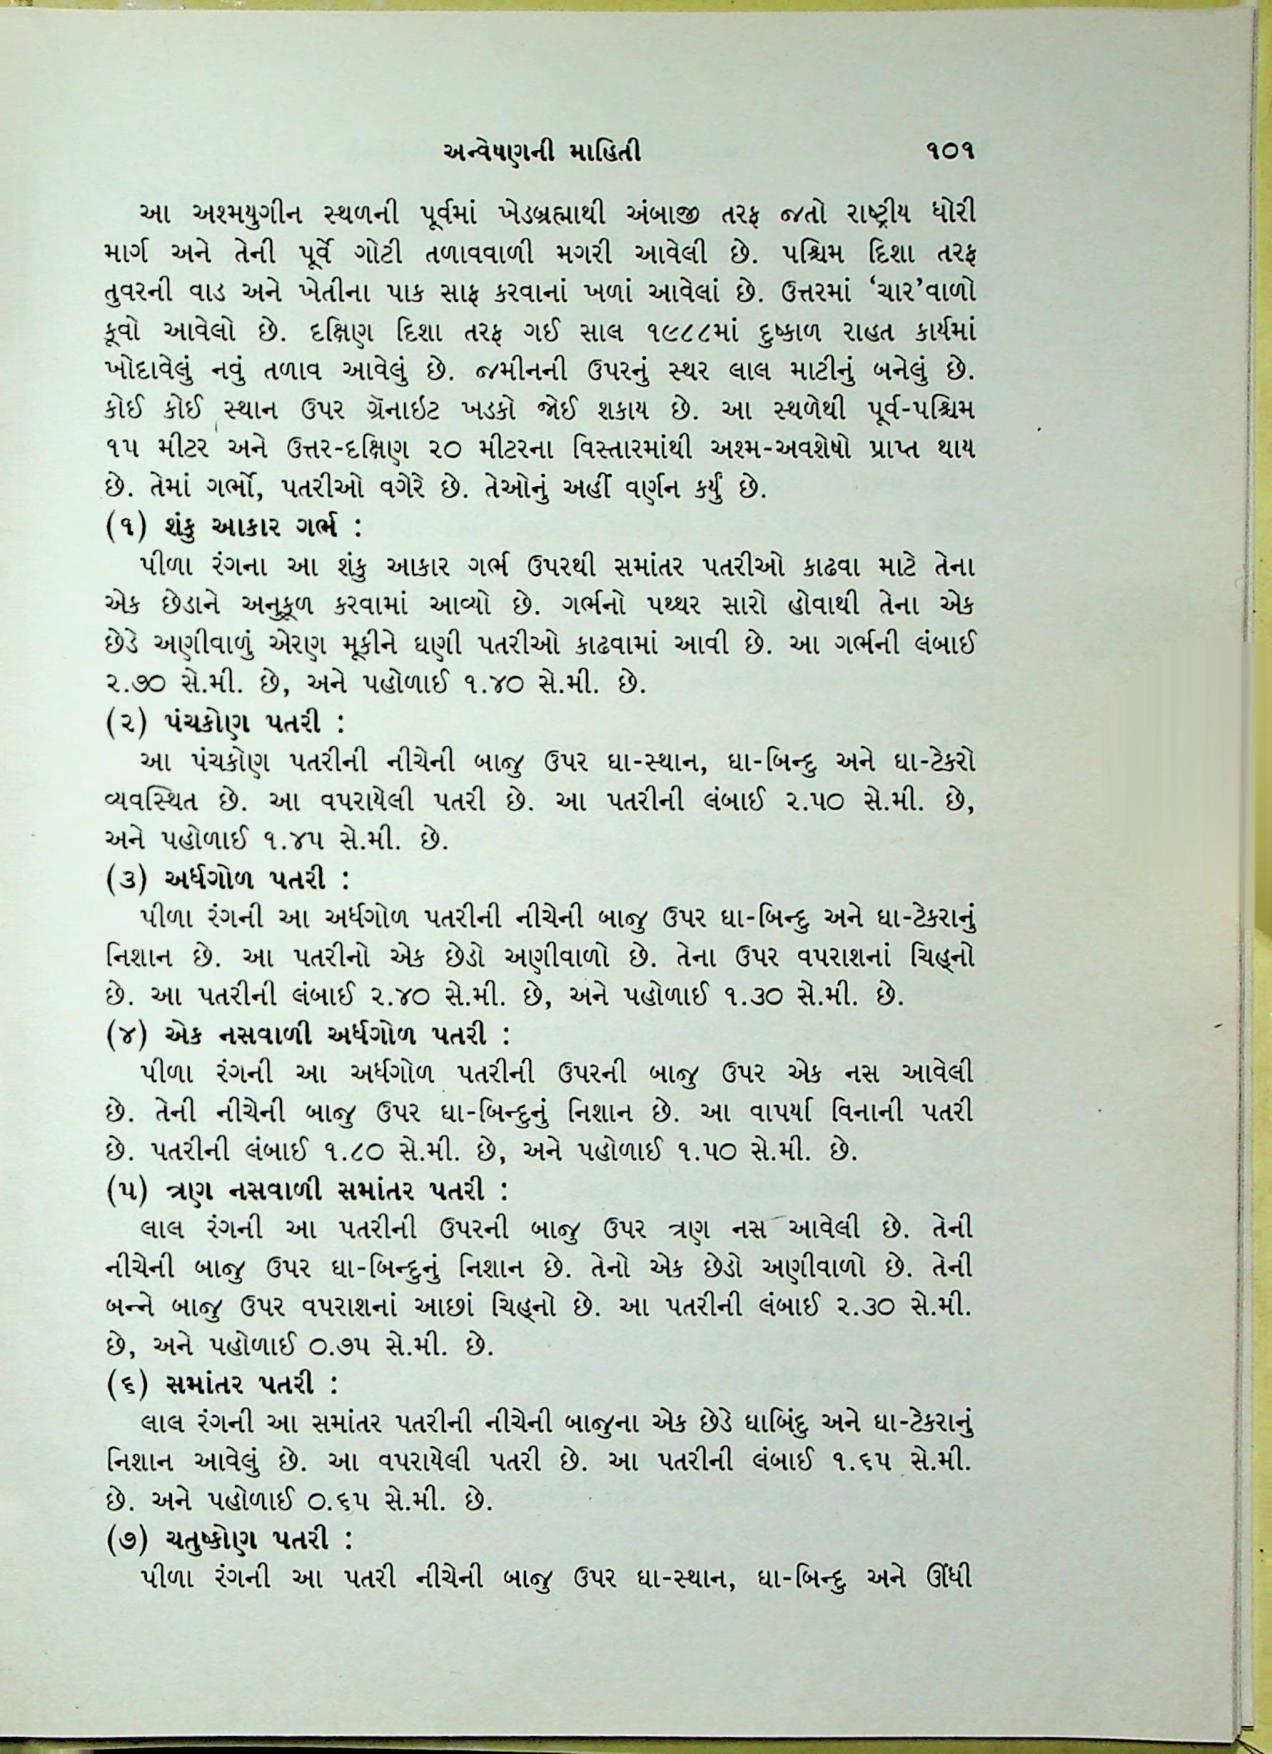 અન્વેષણની માહિતી ૧૦૧
આ અશ્મયુગીન સ્થળની પૂર્વમાં ખેડબ્રહ્માથી અંબાજી તરફ જતો રાષ્ટ્રીય ધોરી
માર્ગ અને તેની પૂર્વે ગોટી તળાવવાળી મગરી આવેલી છે. પશ્ચિમ દિશા તરફ
તુવરની વાડ અને ખેતીના પાક સાફ કરવાનાં ખળાં આવેલાં છે. ઉત્તરમાં ‘ચાર’વાળો
કૂવો આવેલો છે. દક્ષિણ દિશા તરફ ગઈ સાલ ૧૯૮૮માં દુષ્કાળ રાહત કાર્યમાં
ખોદાવેલું નવું તળાવ આવેલું છે. જમીનની ઉપરનું સ્થર લાલ માટીનું બનેલું છે.
કોઈ કોઈ સ્થાન ઉપર ગ્રૅનાઇટ ખડકો જોઈ શકાય છે. આ સ્થળેથી પૂર્વ-પશ્ચિમ
૧૫ મીટર અને ઉત્તર-દક્ષિણ ૨૦ મીટરના વિસ્તારમાંથી અશ્મ-અવશેષો પ્રાપ્ત થાય
છે. તેમાં ગર્ભો, પતરીઓ વગેરે છે. તેઓનું અહીં વર્ણન કર્યું છે.
(૧) શંકુ આકાર ગર્ભ :
પીળા રંગના આ શંકુ આકાર ગર્ભ ઉપરથી સમાંતર પતરીઓ કાઢવા માટે તેના
એક છેડાને અનુકૂળ કરવામાં આવ્યો છે. ગર્ભનો પથ્થર સારો હોવાથી તેના એક
છેડે અણીવાળું એરણ મૂકીને ઘણી પતરીઓ કાઢવામાં આવી છે. આ ગર્ભની લંબાઈ
૨.૭૦ સે.મી. છે, અને પહોળાઈ ૧.૪૦ સે.મી. છે.
(૨) પંચકોણ પતરી :
આ પંચકોણ પતરીની નીચેની બાજુ ઉપર ઘા-સ્થાન, ઘા-બિન્દુ અને ઘા-ટેકરો
વ્યવસ્થિત છે. આ વપરાયેલી પતરી છે. આ પતરીની લંબાઈ ૨.૫૦ સે.મી. છે,
અને પહોળાઈ ૧.૪૫ સે.મી. છે.
(૩) અર્ધગોળ પતરી :
પીળા રંગની આ અર્ધગોળ પતરીની નીચેની બાજુ ઉપર ઘા-બિન્દુ અને ઘા-ટેકરાનું
નિશાન છે. આ પતરીનો એક છેડો અણીવાળો છે. તેના ઉપર વપરાશનાં ચિહ્નો
છે. આ પતરીની લંબાઈ ૨.૪૦ સે.મી. છે, અને પહોળાઈ ૧.૩૦ સે.મી. છે.
(૪) એક નસવાળી અર્ધગોળ પતરી :
પીળા રંગની આ અર્ધગોળ પતરીની ઉપરની બાજુ ઉપર એક નસ આવેલી
છે. તેની નીચેની બાજુ ઉપર ઘા-બિન્દુનું નિશાન છે. આ વાપર્યા વિનાની પતરી
છે. પતરીની લંબાઈ ૧.૮૦ સે.મી. છે, અને પહોળાઈ ૧.૫૦ સે.મી. છે.
(૫) ત્રણ નસવાળી સમાંતર પતરી :
લાલ રંગની આ પતરીની ઉપરની બાજુ ઉપર ત્રણ નસ આવેલી છે. તેની
નીચેની બાજુ ઉપર ઘા-બિન્દુનું નિશાન છે. તેનો એક છેડો અણીવાળો છે. તેની
બન્ને બાજુ ઉપર વપરાશનાં આછાં ચિહ્નો છે. આ પતરીની લંબાઈ ૨.૩૦ સે.મી.
છે, અને પહોળાઈ ૦.૭૫ સે.મી. છે.
(૬) સમાંતર પતરી :
લાલ રંગની આ સમાંતર પતરીની નીચેની બાજુના એક છેડે ઘાબિંદુ અને ઘા-ટેકરાનું
નિશાન આવેલું છે. આ વપરાયેલી પતરી છે. આ પતરીની લંબાઈ ૧.૬૫ સે.મી.
છે. અને પહોળાઈ ૦.૬૫ સે.મી. છે.
(૭) ચતુષ્કોણ પતરી :
પીળા રંગની આ પતરી નીચેની બાજુ ઉપર ઘા-સ્થાન, ઘા-બિન્દુ અને ઊંધી